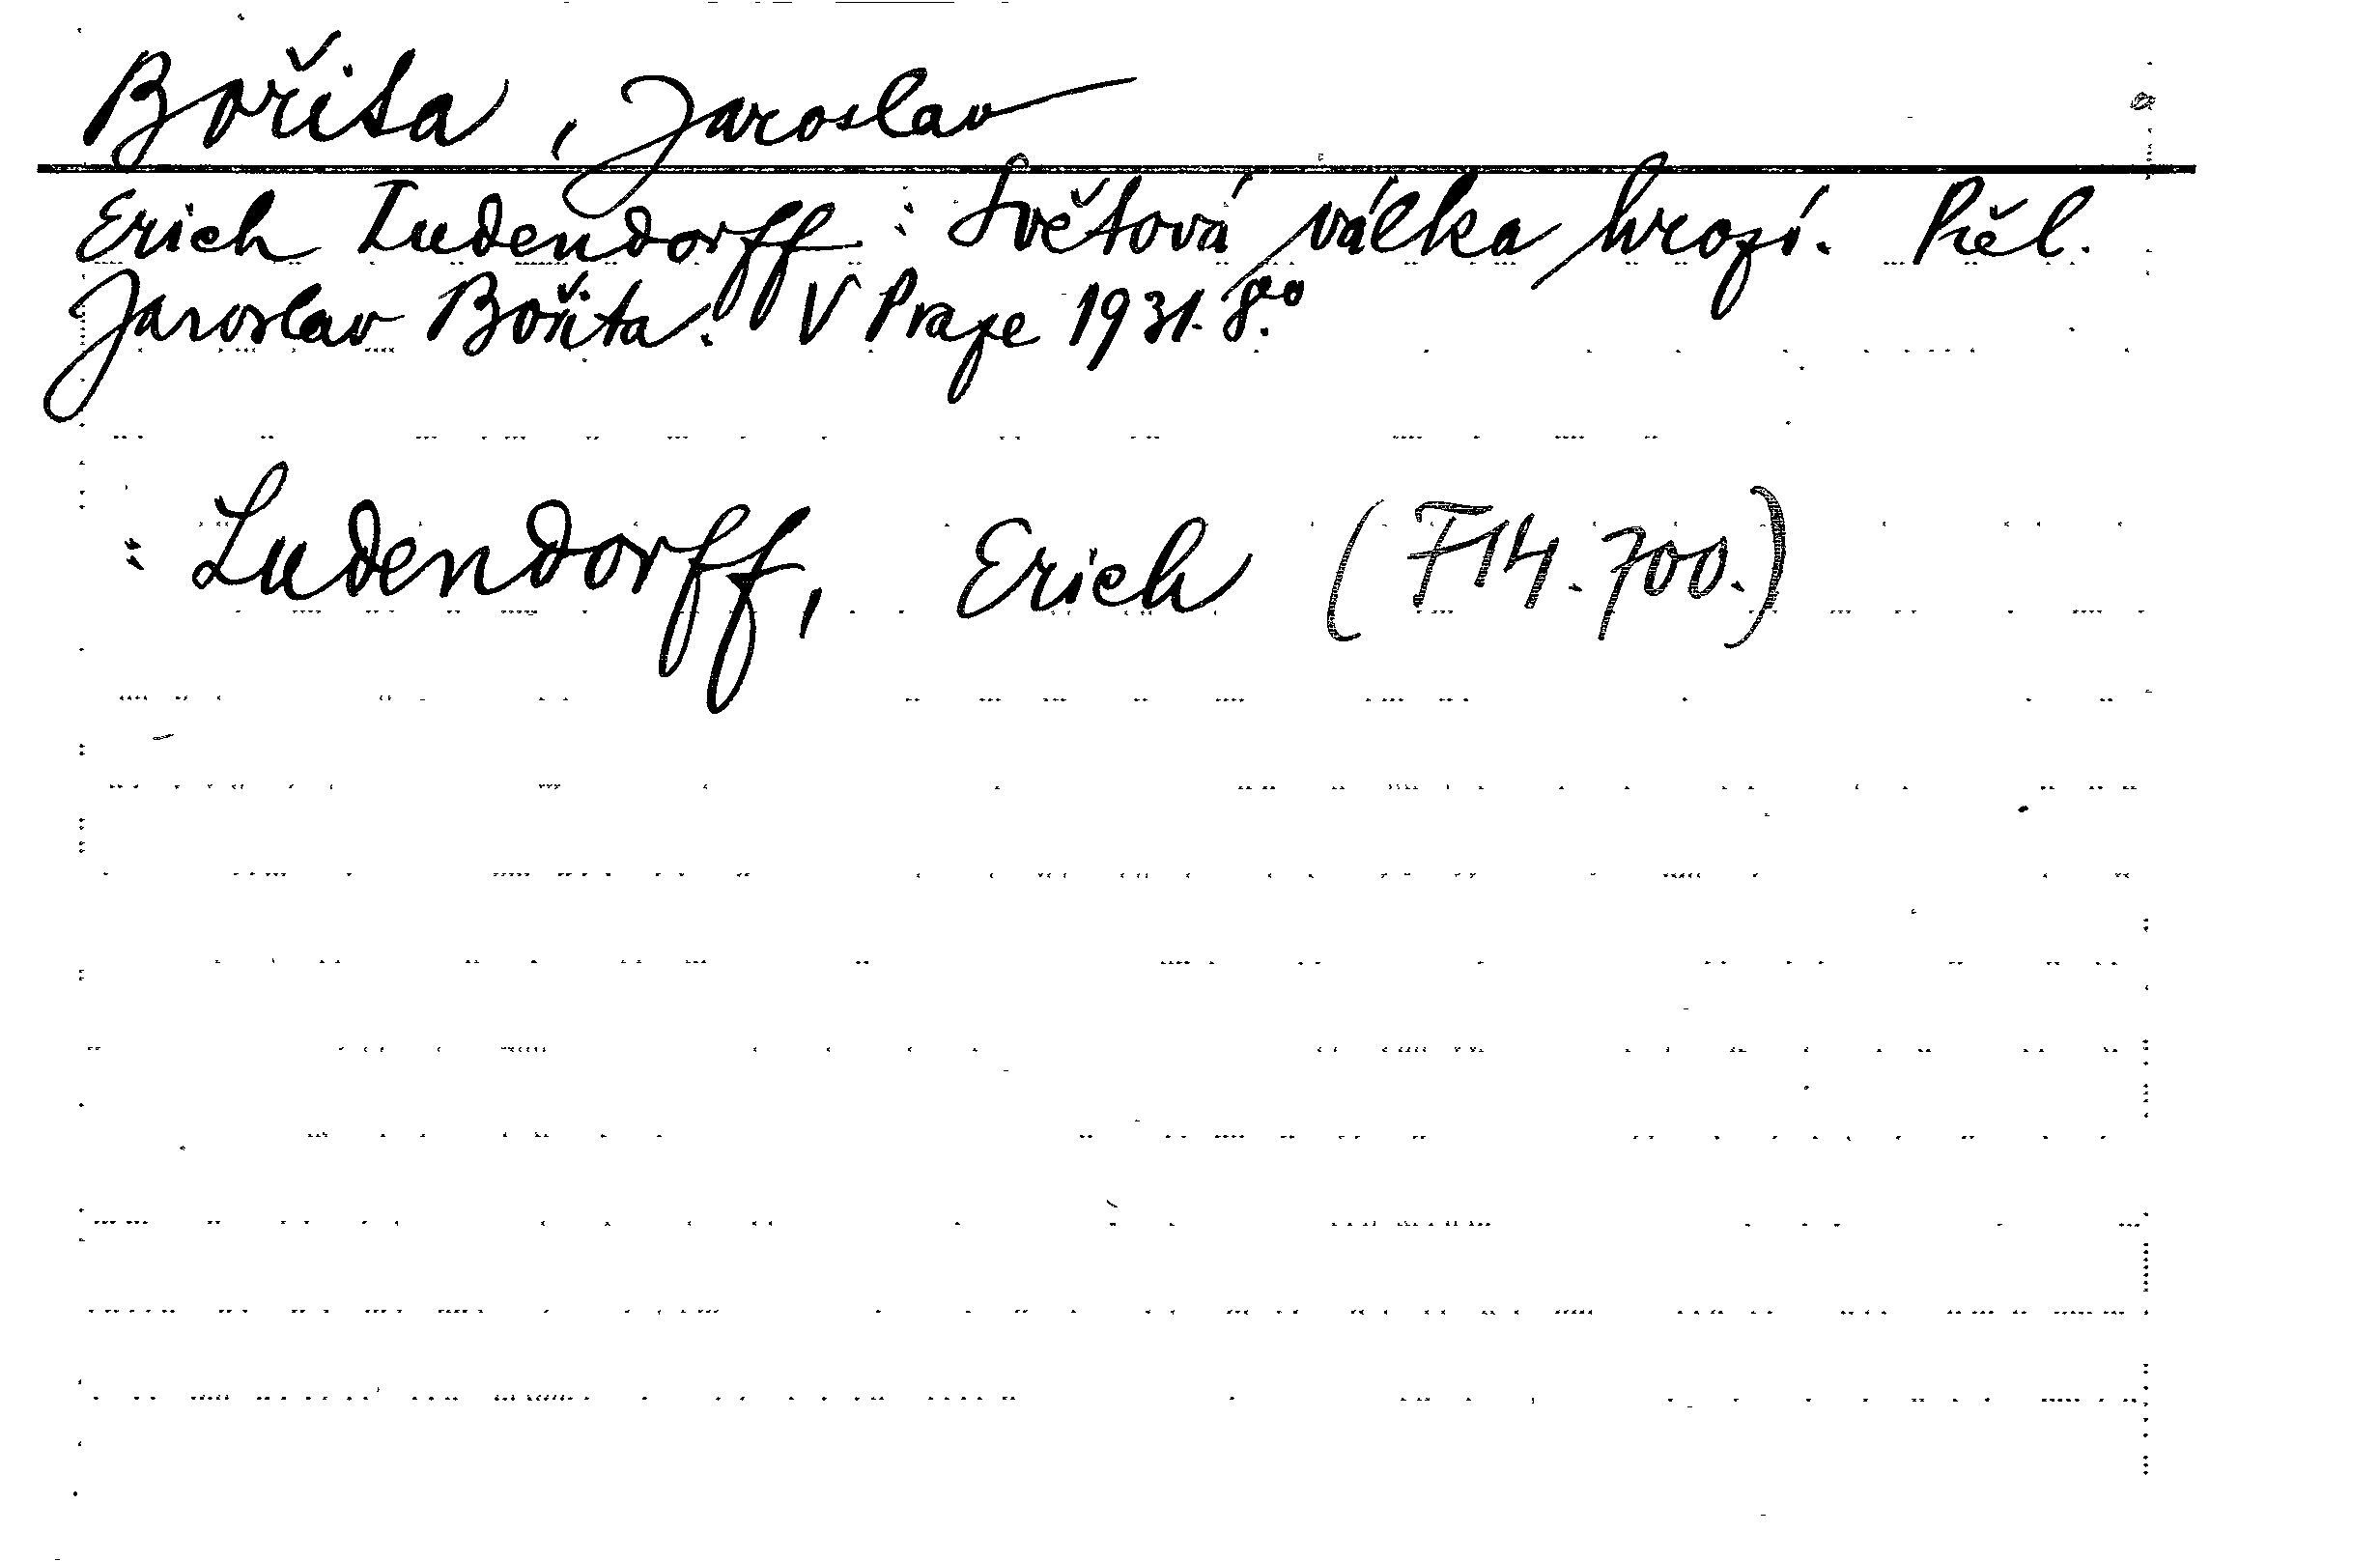 Bořita, Jaroslav
Erich Ludendorff: Světová válka hrozí. Přel.
Jaroslav Bořita. V Praze 1931. 8.º
: Ludendorff, Erich (F14.700.)